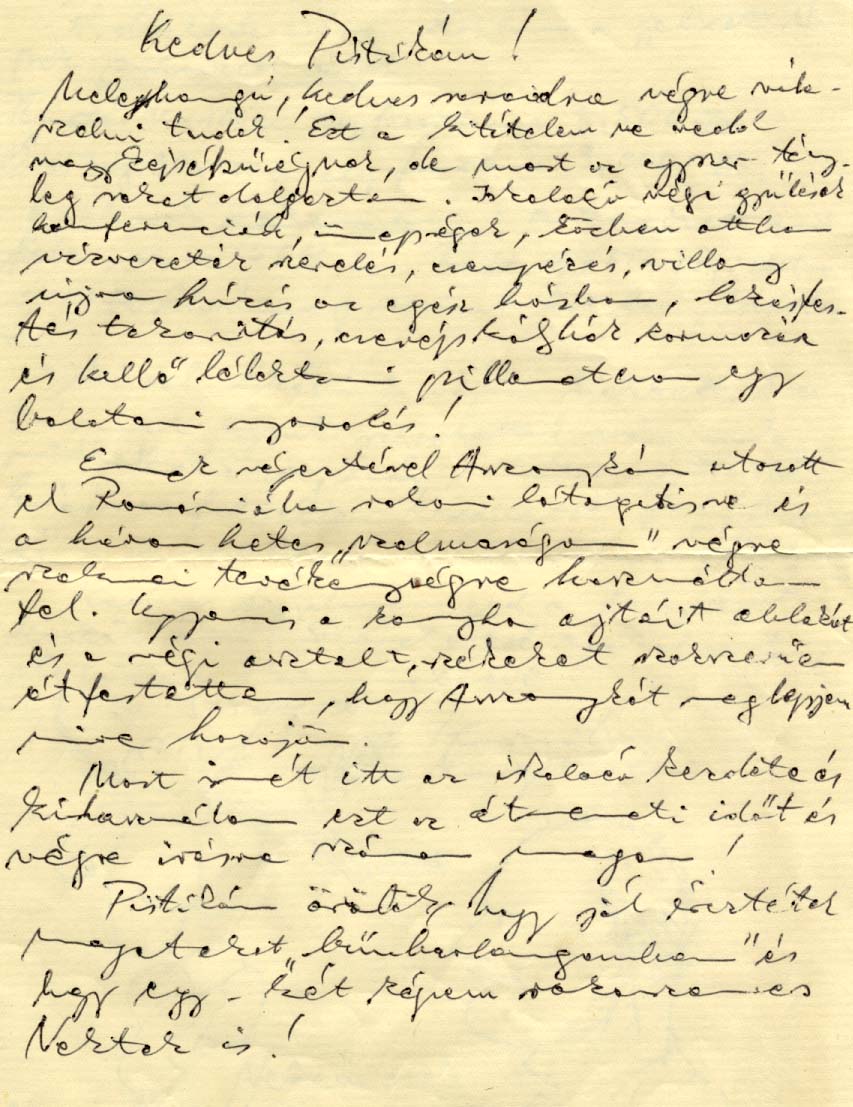 Kedves Pistikám!
Meleghangú, kedves soraidra végre vála-
szolni tudok! Ezt a kitételem ne vedd
nagyképűsködésnek, de most az egyszer tény-
leg sokat dolgoztam. Iskolaév végi gyűlések
konferenciák, ünnepségek, közben otthon
vízvezeték szerelés, csempézés, villany
újra húzás az egész házban, lakásfes-
tés takarítás, cserépkályhák kormozása
és kellő lélektani pillanatban egy
balatoni nyaralás!
Ennek végeztével Aranykám utazott
el Romániába rokoni látogatásra és
a három hetes „szalmaságom” végre
szakmai tevékenységre használtam
fel. Ugyanis a konyha ajtóit ablakát
és a régi asztalt, székeket szakszerűen
átfestettem, hogy Aranykát meglepjem
mire hazajön.
Most ismét itt az iskolaév kezdete és
kihasználom ezt az átmeneti időt és
végre írásra szánom magam!
Pistikám örülök, hogy jól éreztétek
magatokat „bűnbarlangomban” és
hogy egy-két képem
Nektek is!